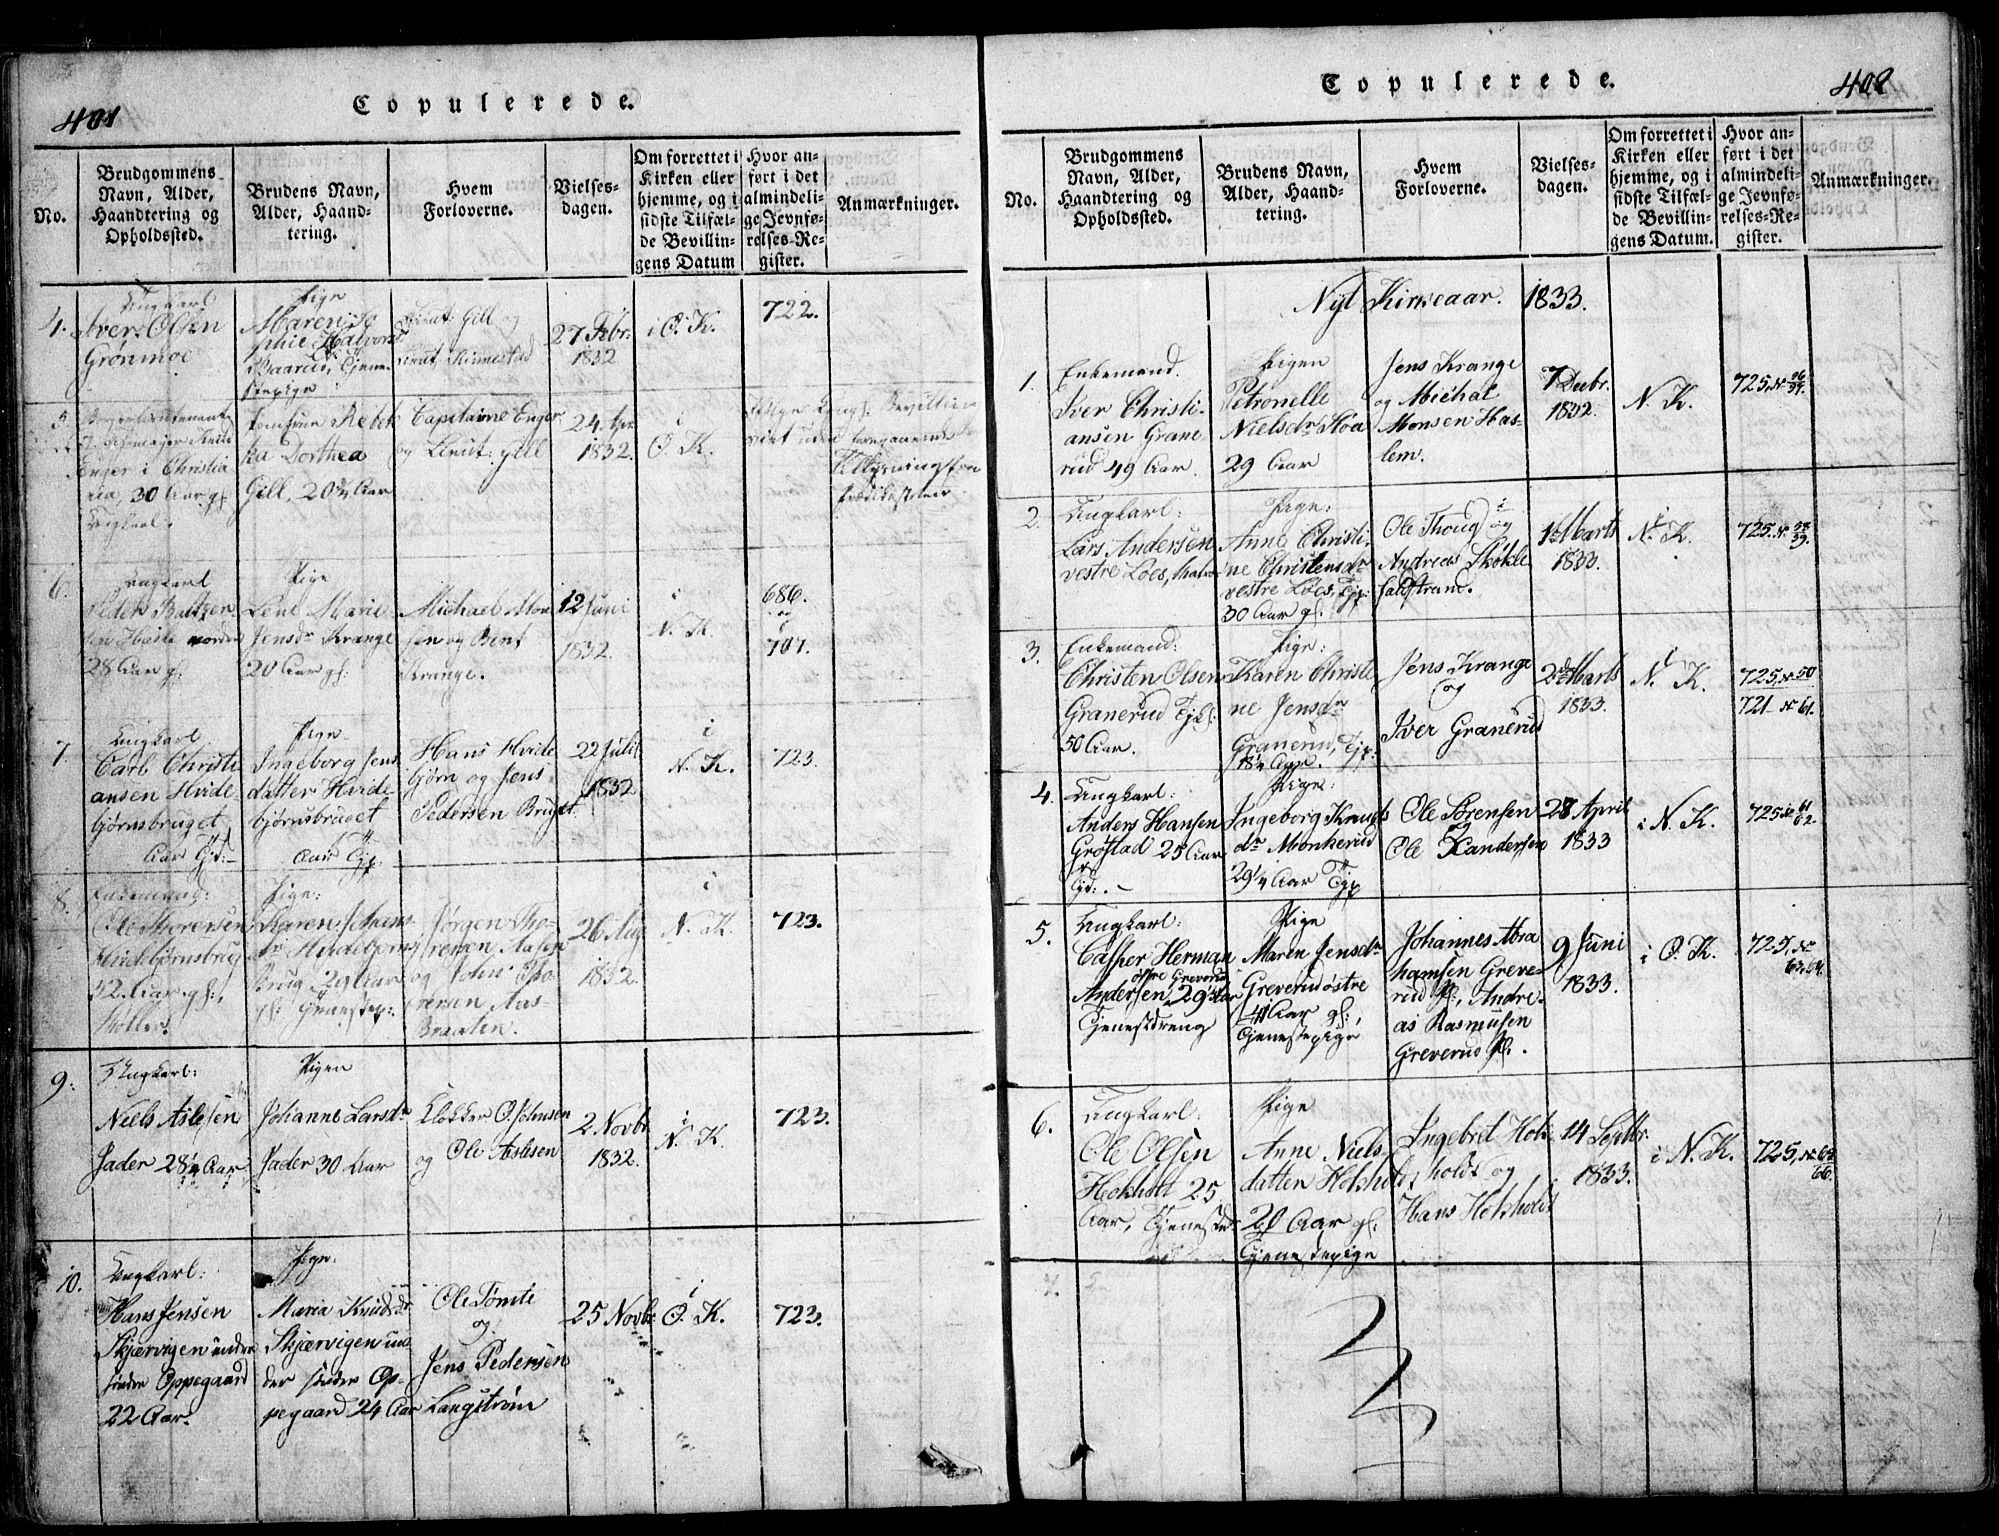 401
Copulerede.
No.
Brudgommens
Navn, Alder,
Haandtering og
Opholdssted.
Brudens Navn,
Alder, Haand-
tering.
Hvem
Forloverne.
Vielses-
dagen.
Om forrettet i
Kirken eller
hjemme, og i
sidste Tilfæl-
de Bevillin-
gens Datum
Hvor an-
ført i det
almindeli-
ge Jevnfø-
relses-Re-
gister.
Anmærkninger.
4.
Ungkarl
Iver Olsen
Grönmoe
Pige
Maren So
phie Halvorsd
Baarud, Tjene-
stepige
Lieut: Gill og
Lieut.
27 Febr.
1832
i O. K.
722.
5.
Enger i Christia
nia, 30 Aar gl
Ungkarl.
Jomfrue Rebek
ka Dorthea
Gill, 20¾ Aar
Capitaine Enger
og Lieut: Gill
24 Apr
1832.
i
O. K.
6.
Ungkarl
Peder Baltzer
28 Aar gl.
Pige
Lene Marie
Jensdr Krange
20 Aar gl:
Michael Mon
sen og Bent
Krange.
12 Juni
1832.
i
N. K.
686.
og
i
707.
7.
Ungkarl
Carl Christi
ansen Hvide-
bjørnsbruget
Aar Tjd:
Pige
Ingeborg Jens
datter Hvide-
bjørnsbruget
Aar Tjp:
Hans Hvide
bjørn og Jens
Pedersen Bruget.
22 Juli
1832
i
N. K.
723.
8.
Enkemand:
Ole Thoresen
Hvidebjørnsbrug
52 Aar gl.,
Pige:
Karen Johans
dr Hvidebjørns
Brug 29 Aar
gl: Tjenestep:
Jørgen Tho-
resen Aasen
og John Tho
resen Aas-
Braaten.
26 Aug
1832.
i
N. K.
723.
9:
Ungkarl:
Niels Aslesen
Jader 28¼ Aar
Pigen
Johanne Larsdr
Jader 30 Aar
Klokker O. Johnsen
og Ole Aslesen
2 Novbr
1832.
i
N. K.
723.
10.
Ungkarl:
Hans Jensen
Skjærvigen under
søndre Oppegaard
22 Aar.
Pige:
Maria Knudsdr
Skjærvigen un
der søndre Op-
pegaard 24 Aar
Ole Tömte
og
Jens Pedersen
Langström
25 Novbr
i
O. K.
723.
402
Copulerede.
No.
Brudgommens
Navn, Alder,
Haandtering og
Opholdssted.
Brudens Navn,
Alder, Haand-
tering.
Hvem
Forloverne.
Vielses-
dagen.
Om forrettet i
Kirken eller
hjemme, og i
sidste Tilfæl-
de Bevillin-
gens Datum.
Hvor an-
ført i det
almindeli-
ge Jevnfø-
relses-Re-
gister.
Anmærkninger.
Nyt Kirkeaar. 1833.
1.
Enkemand.
Iver Christi-
ansen Grane
rud 49 Aar.
Pigen
Petronelle
Nielsdr
29 Aar
Jens Krange
og Michal
Monsen Has-
lem.
7 Decbr.
1832.
N. K.
725,
2.
Ungkarl:
Lars Andersen
vestre Loes,
Pige:
Anne Christi-
ne Christensdr
vestre Loes, Tjp:
30 Aar gl.
Ole Thoug og
Andreas
1 Marts
1833.
i
N. K.
725
3.
Enkemand:
Christen Olsen
Granerud Tjk:
50 Aar.
Pige:
Karen Christi
ne Jensdr
Granerud, Tjp:
18¼ Aar.
Jens Krange
og
Iver Granerud
2 Marts
1833.
i
N. K.
725, № 50
721 № 61.
4.
Ungkarl:
Anders Hansen
Gröstad 25 Aar
Tjd:
Pige:
Ingeborg Knuds
dr Monkerud
29¼ Aar Tjp
Ole Sörensen
og
Ole Randersen
28 April
1833
i N. K.
725 № 61
62.
5.
Ungkarl:
Casper Herman
østre Greverud
Andersen 29 Aar
Tjenestdreng
Pige
Maren Jensdr
Greverud østre
41 Aar gl:,
Tjenestepige
Johannes Abra
hamsen Greve-
rud og, Andre-
as Rasmusen
Greverud.
9 Juni
1833.
i O. K.
725, №
63, 64.
6.
Ungkarl:
Ole Olsen
Hokholt 25
Aar, Tjenestedr
Pige
Anne Niels
datter Hokholdt
29 Aar gl:
Tjenestepige
Ingebret Hok-
holdt og
Hans Hokholdt
14 Septbr.
1833.
i N. K.
725, № 65
66.